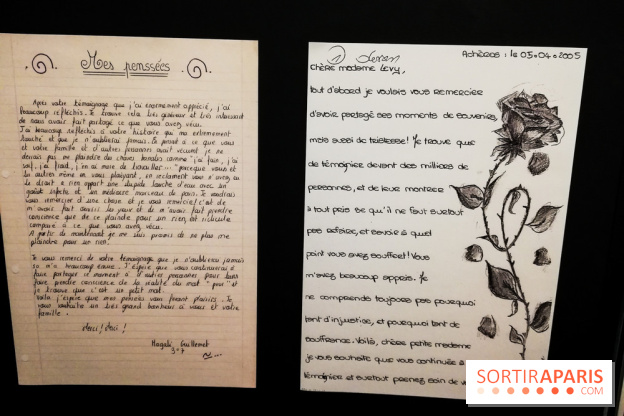 Mes pensées
Après votre témoignage que j'ai énormément apprécié, j'ai
beaucoup réfléchis. Je trouve cela très généreux et très intéressant
de nous avoir fait partagé ce que vous avez vécu.
J'ai beaucoup réfléchis à votre histoire qui m'a enormement
touché et que je n'oublierai jamais. En pensant à ce que vous
et votre famille et d'autres personnes avait vécu, je ne
devrais pas me plaindre des choses banales comme "j'ai faim, j'ai
soif, j'ai froid, j'en ai marre de travailler..." parceque vous et
les autres même en vous plaignant, en réclament vous n'avez, ou
le disant a rien appart une stupide louche d'eau avec un
goût infecte et un médiocre morceau de pain. Je voudrais
vous remercier d'une chose et je vous remercie, c'est de
m'avoir fait ouvrir les yeux et de m'avoir fait prendre
conscience que de ce plaindre pour un rien, est ridicule
comparé à ce que vous avez vécu.
A partir de maintenant je me suis promis de ne plus me
plaindre pour un rien.
Je vous remerci de votre témoignage que je n'oublierai jamais
ou m'a beaucoup émue. J'espère que vous continuerez à
faire partager ce moment à d'autres personnes pour leur
faire prendre conscience de la réalité du mot "peur" et
je trouve que c'est un petit mot.
Voilà, j'espère que mes pensées vous feront plaisirs. Je
vous souhaite un très grand bonheur à vous et votre
famille.
Merci! Merci!
Magali Guillemet
3°7
1
Acheres : le 05.04.2005
CHÈRE madame LEVY,
tout d'abord je voulais vous remercier
d'avoir partagé ses moments de souvenirs
mais aussi de tristesse! Je trouve que
de témoigner devant des millions de
personnes, et de leur montrer
à tout prix se qu'il ne faut surtout
pas refaire, et savoir à quel
point vous avez souffert! Vous
m'avez beaucoup appris. Je
ne comprends toujours pas pourquoi
tant d'injustice, et pourquoi tant de
souffrance. Voilà, chère petite madame
je vous souhaite que vous continuée à
témoigner et surtout prenez soin de
SORTIRAPARIS
COM